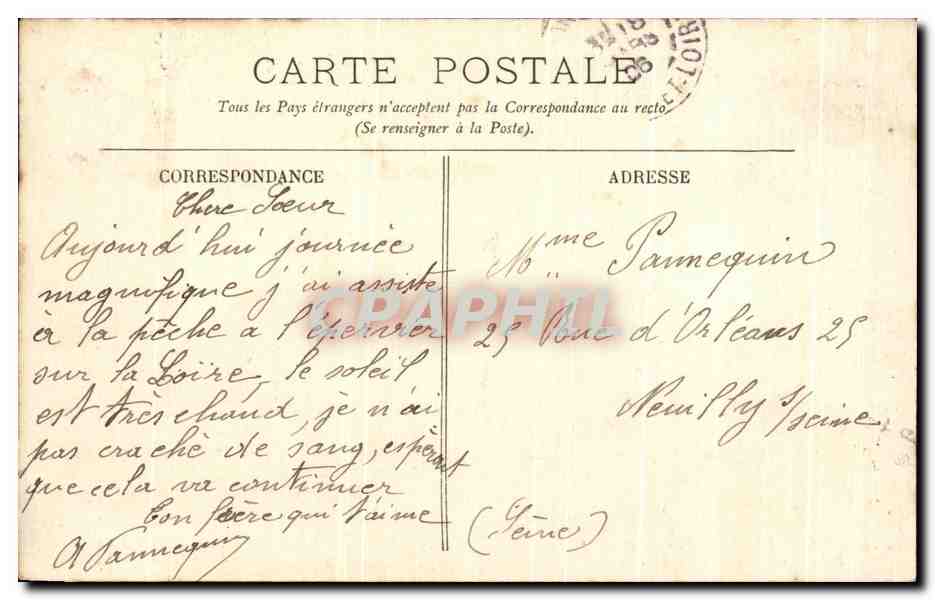 CARTE POSTALE
Tous les Pays étrangers n'acceptent pas la Correspondance au recto
(Se renseigner à la Poste).
CORRESPONDANCE
Chere Sœur
Aujourd'hui journée
magnifique j'ai assisté
à la pêche a l'épervier
sur la Loïre, le soleil
est très chaud, je n'ai
pas craché de sang, espérant
que cela va continuer
Ton frère qui t'aime
A Pannequin
ADRESSE
Mme Pannequin
25 Rue d'Orléans 25
Neuilly s/seine
(Seine)
CPAPHIL
ET-LOIR
06